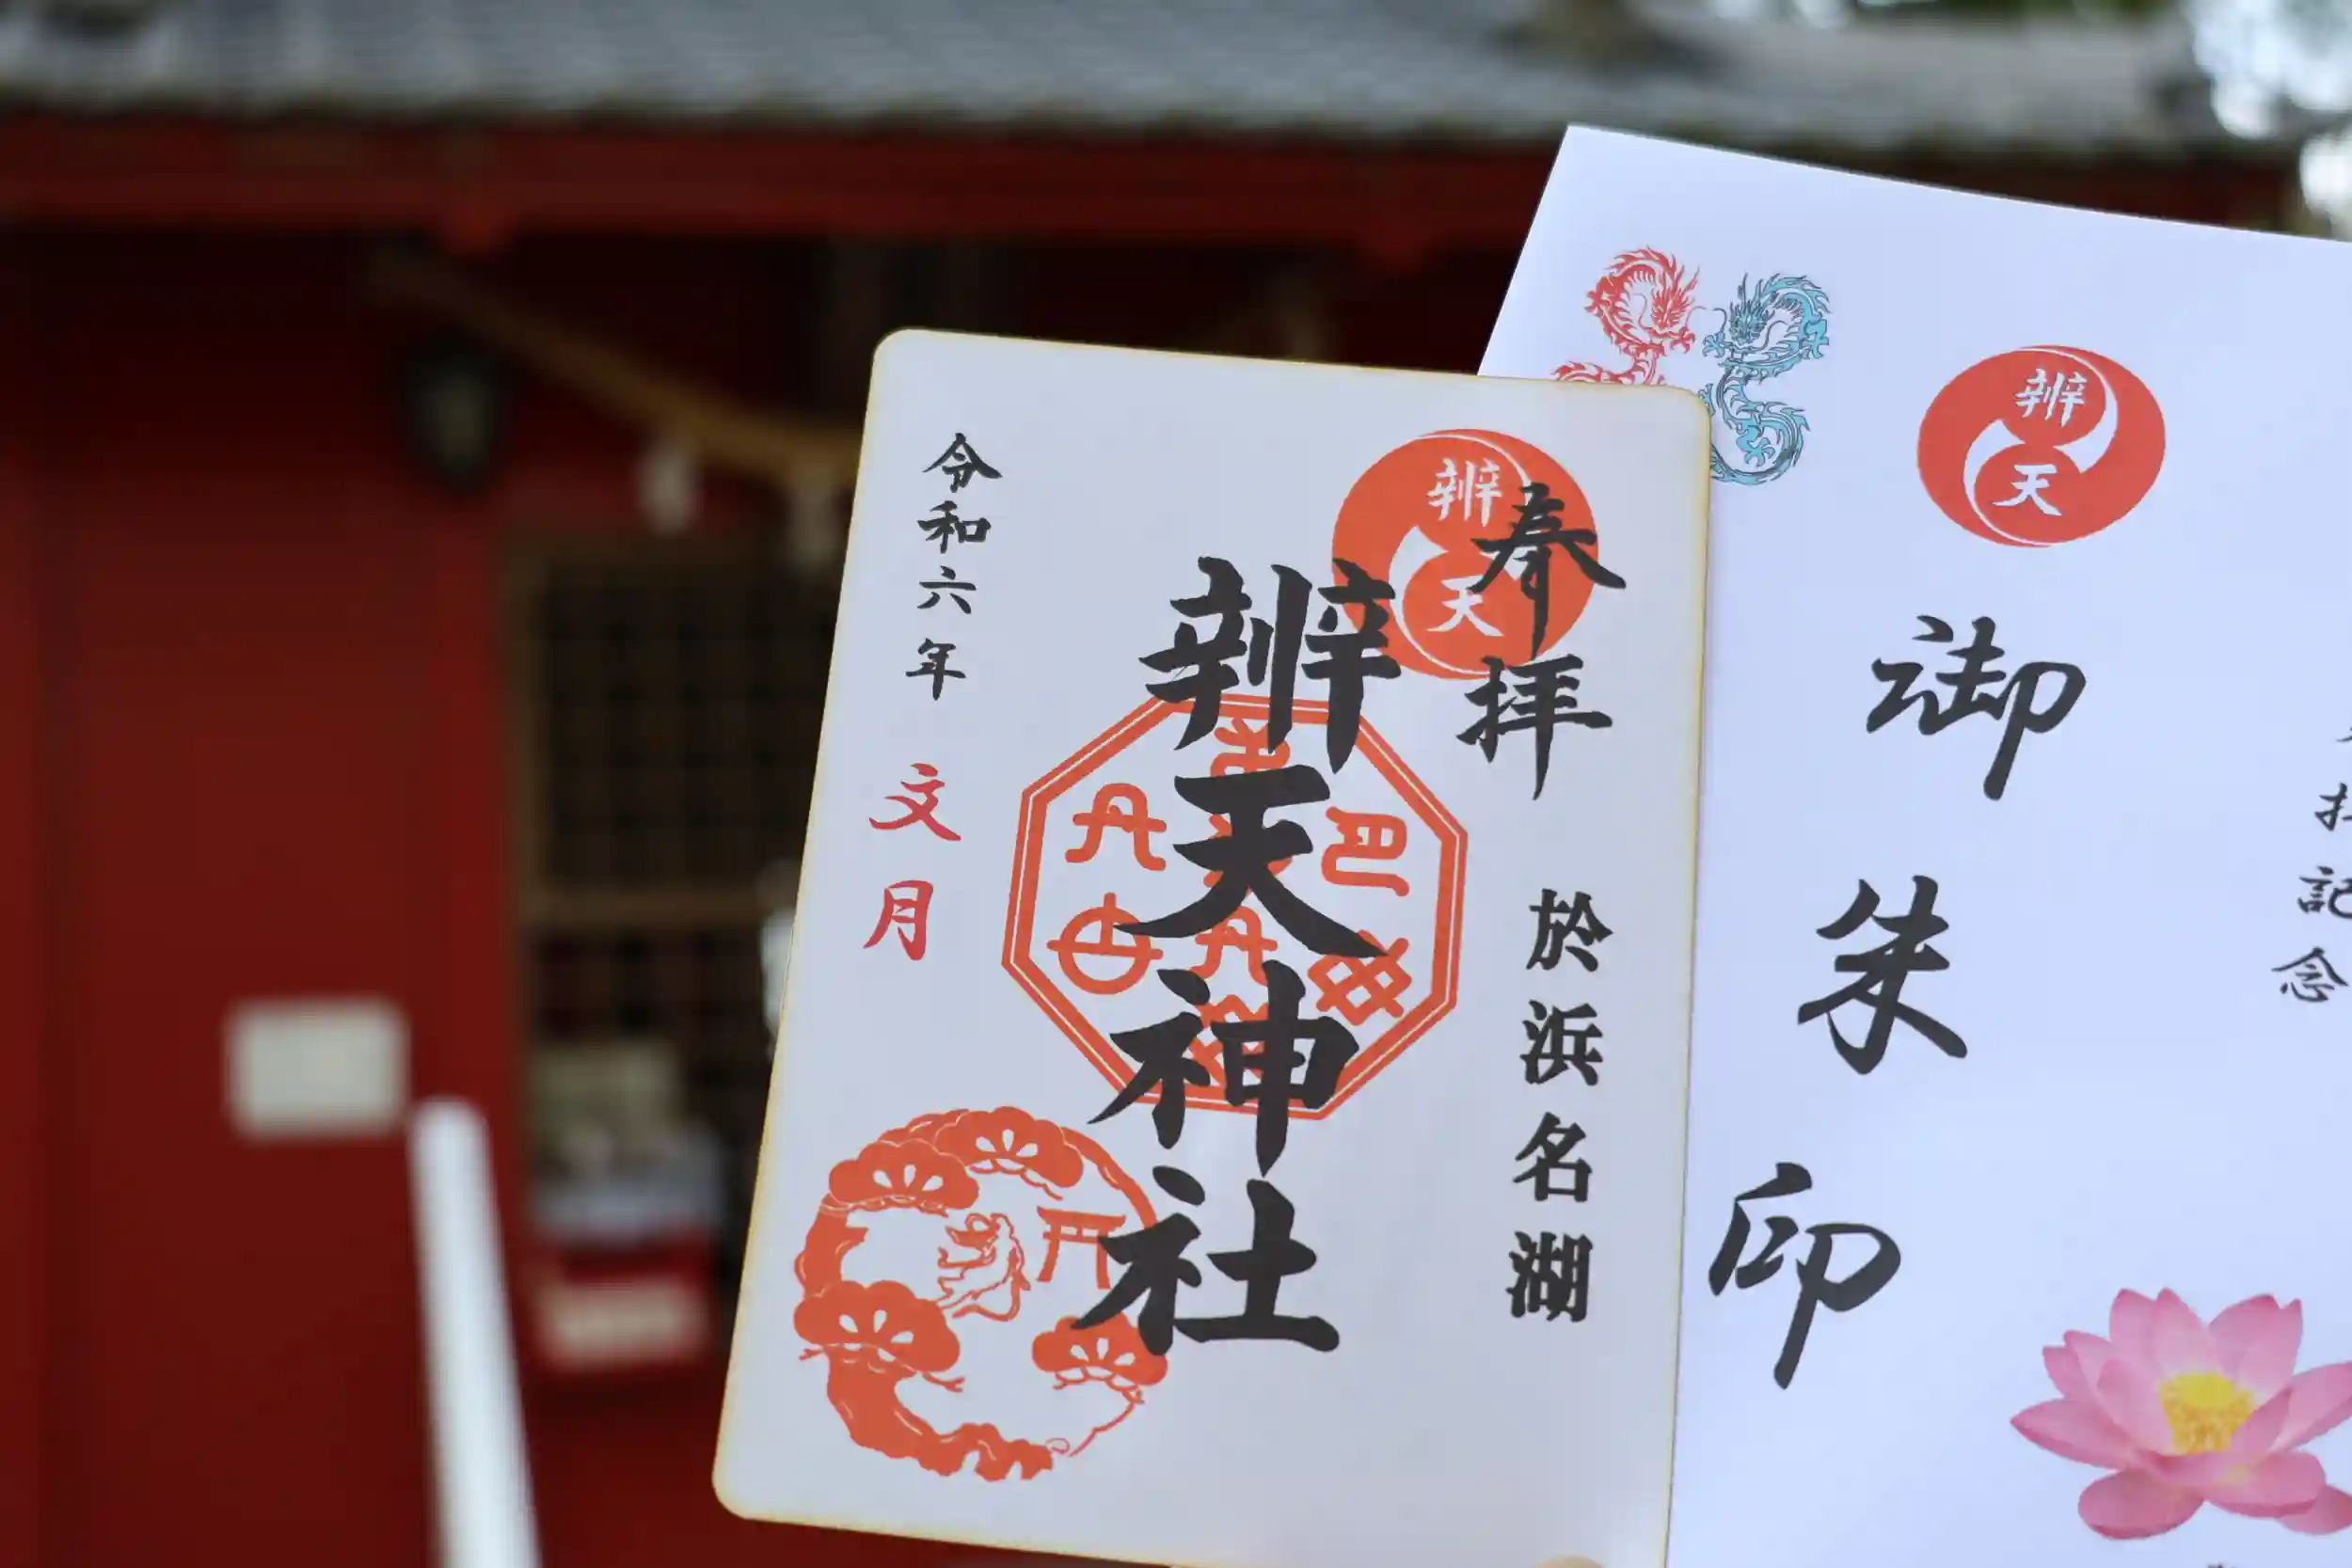 奉拝
於浜名湖
辨天
辨天神社
令和六年 文月
辨天
御朱印
記念